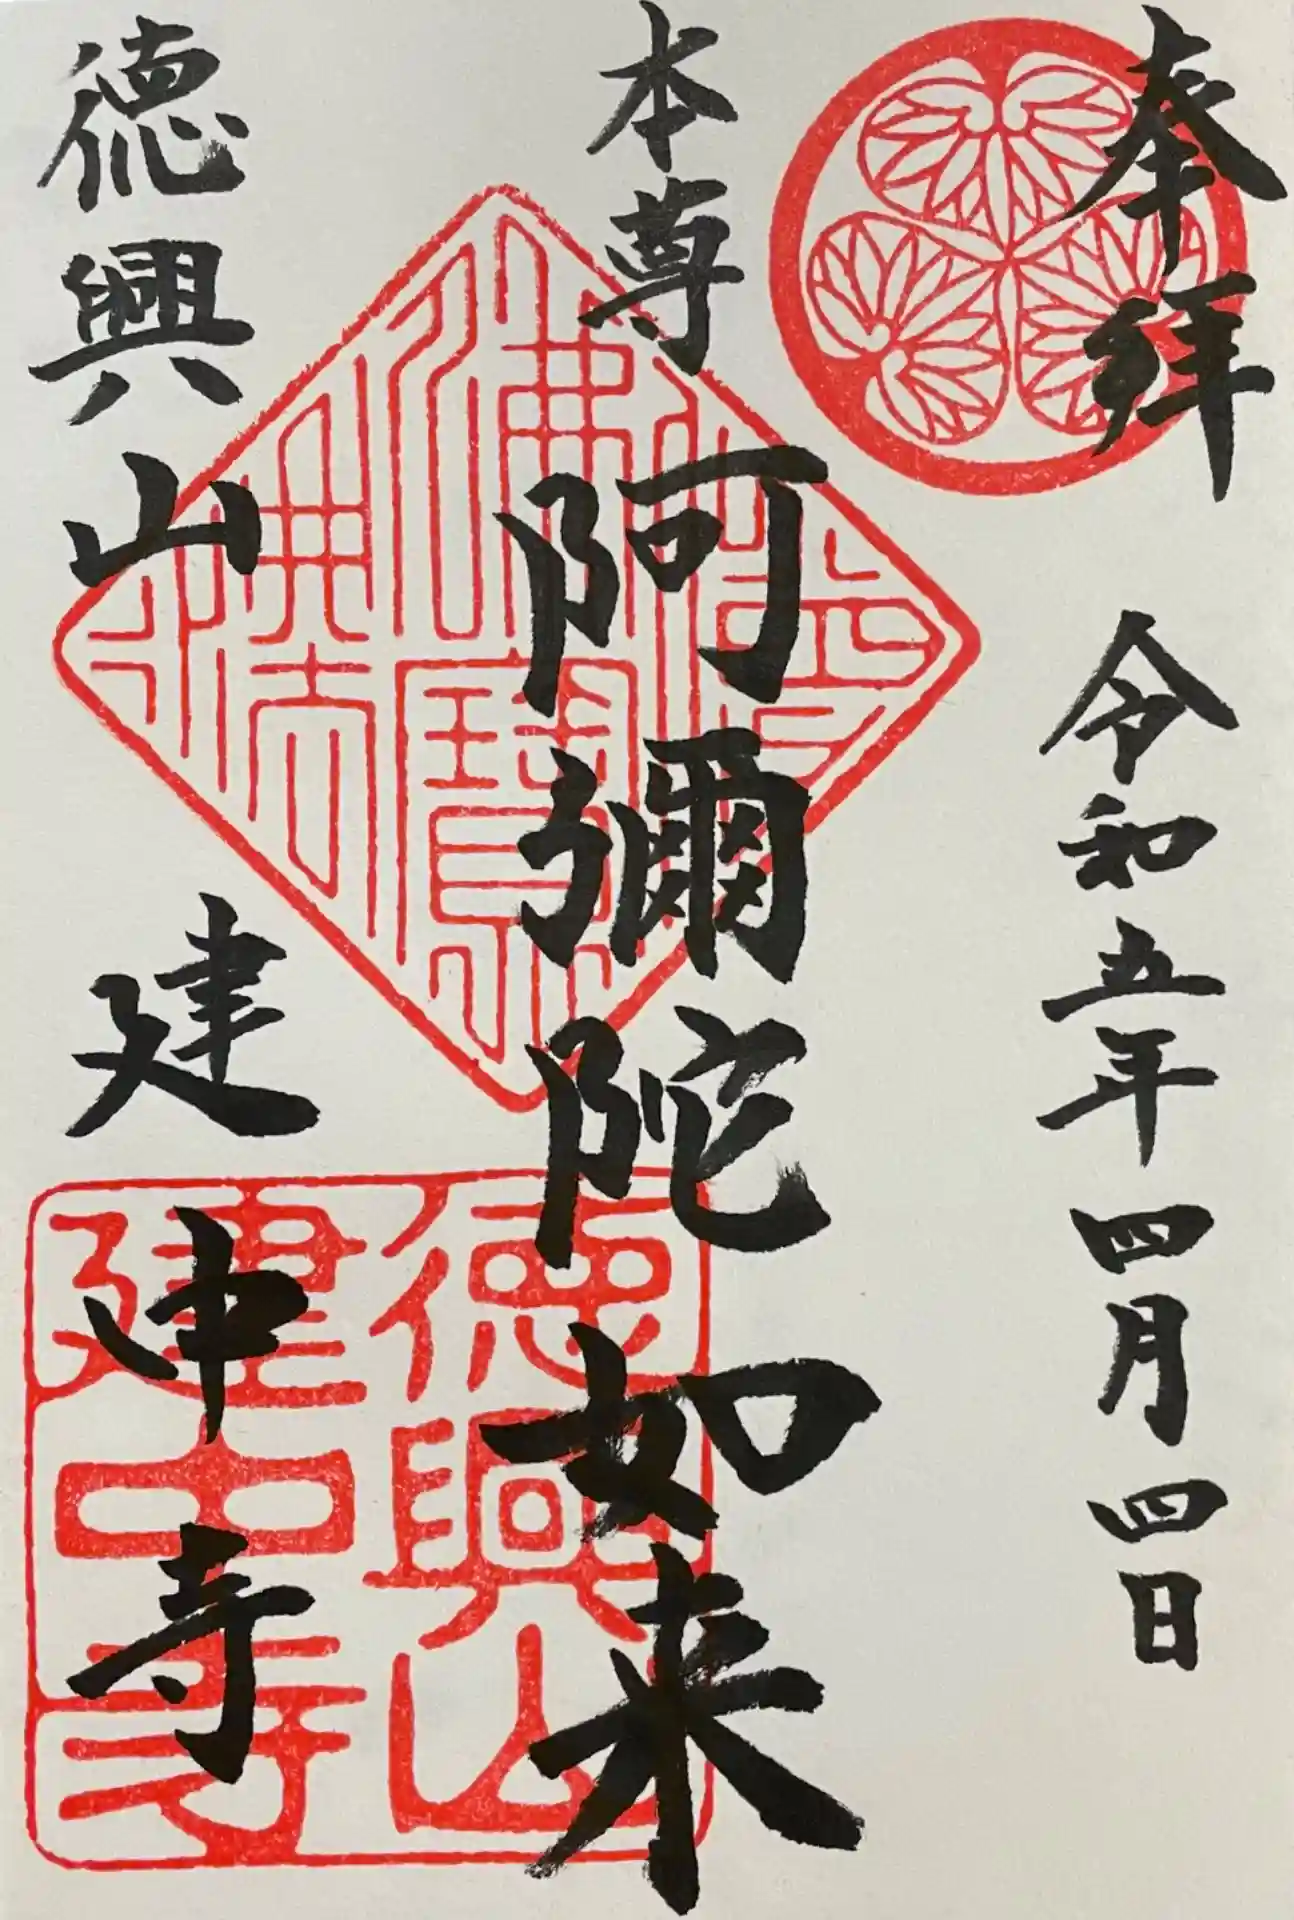 奉拝
令和五年四月四日
本尊
阿彌陀如来
徳興山
建中寺
徳興山
建中寺